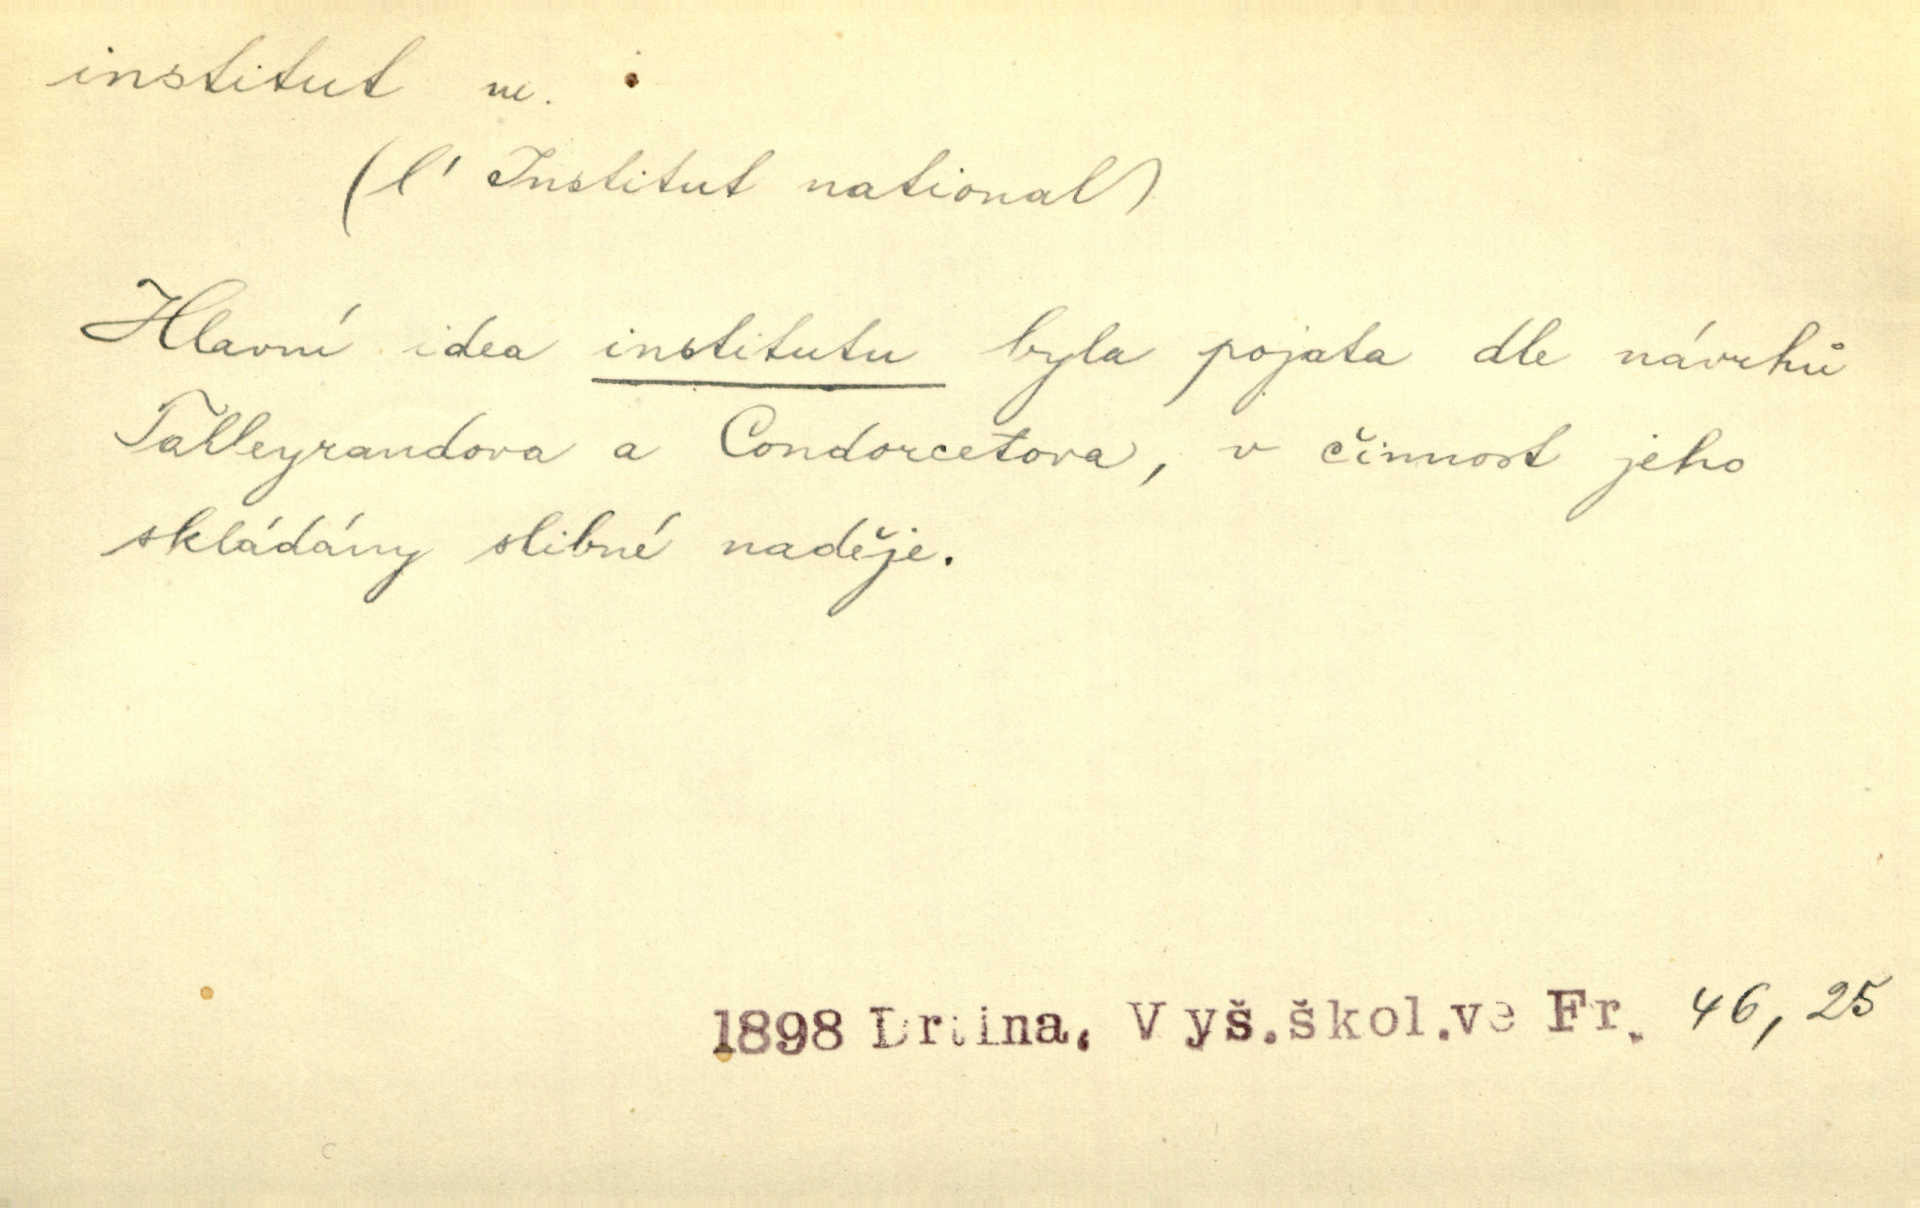 institut m.
(l' Institut national)
Hlavní idea institutu byla pojata dle návrhů
Talleyrandova a Condorcetova, v činnost jeho
skládány slibné naděje.
1898 Drtina, Vyš.škol.ve Fr. 46, 25